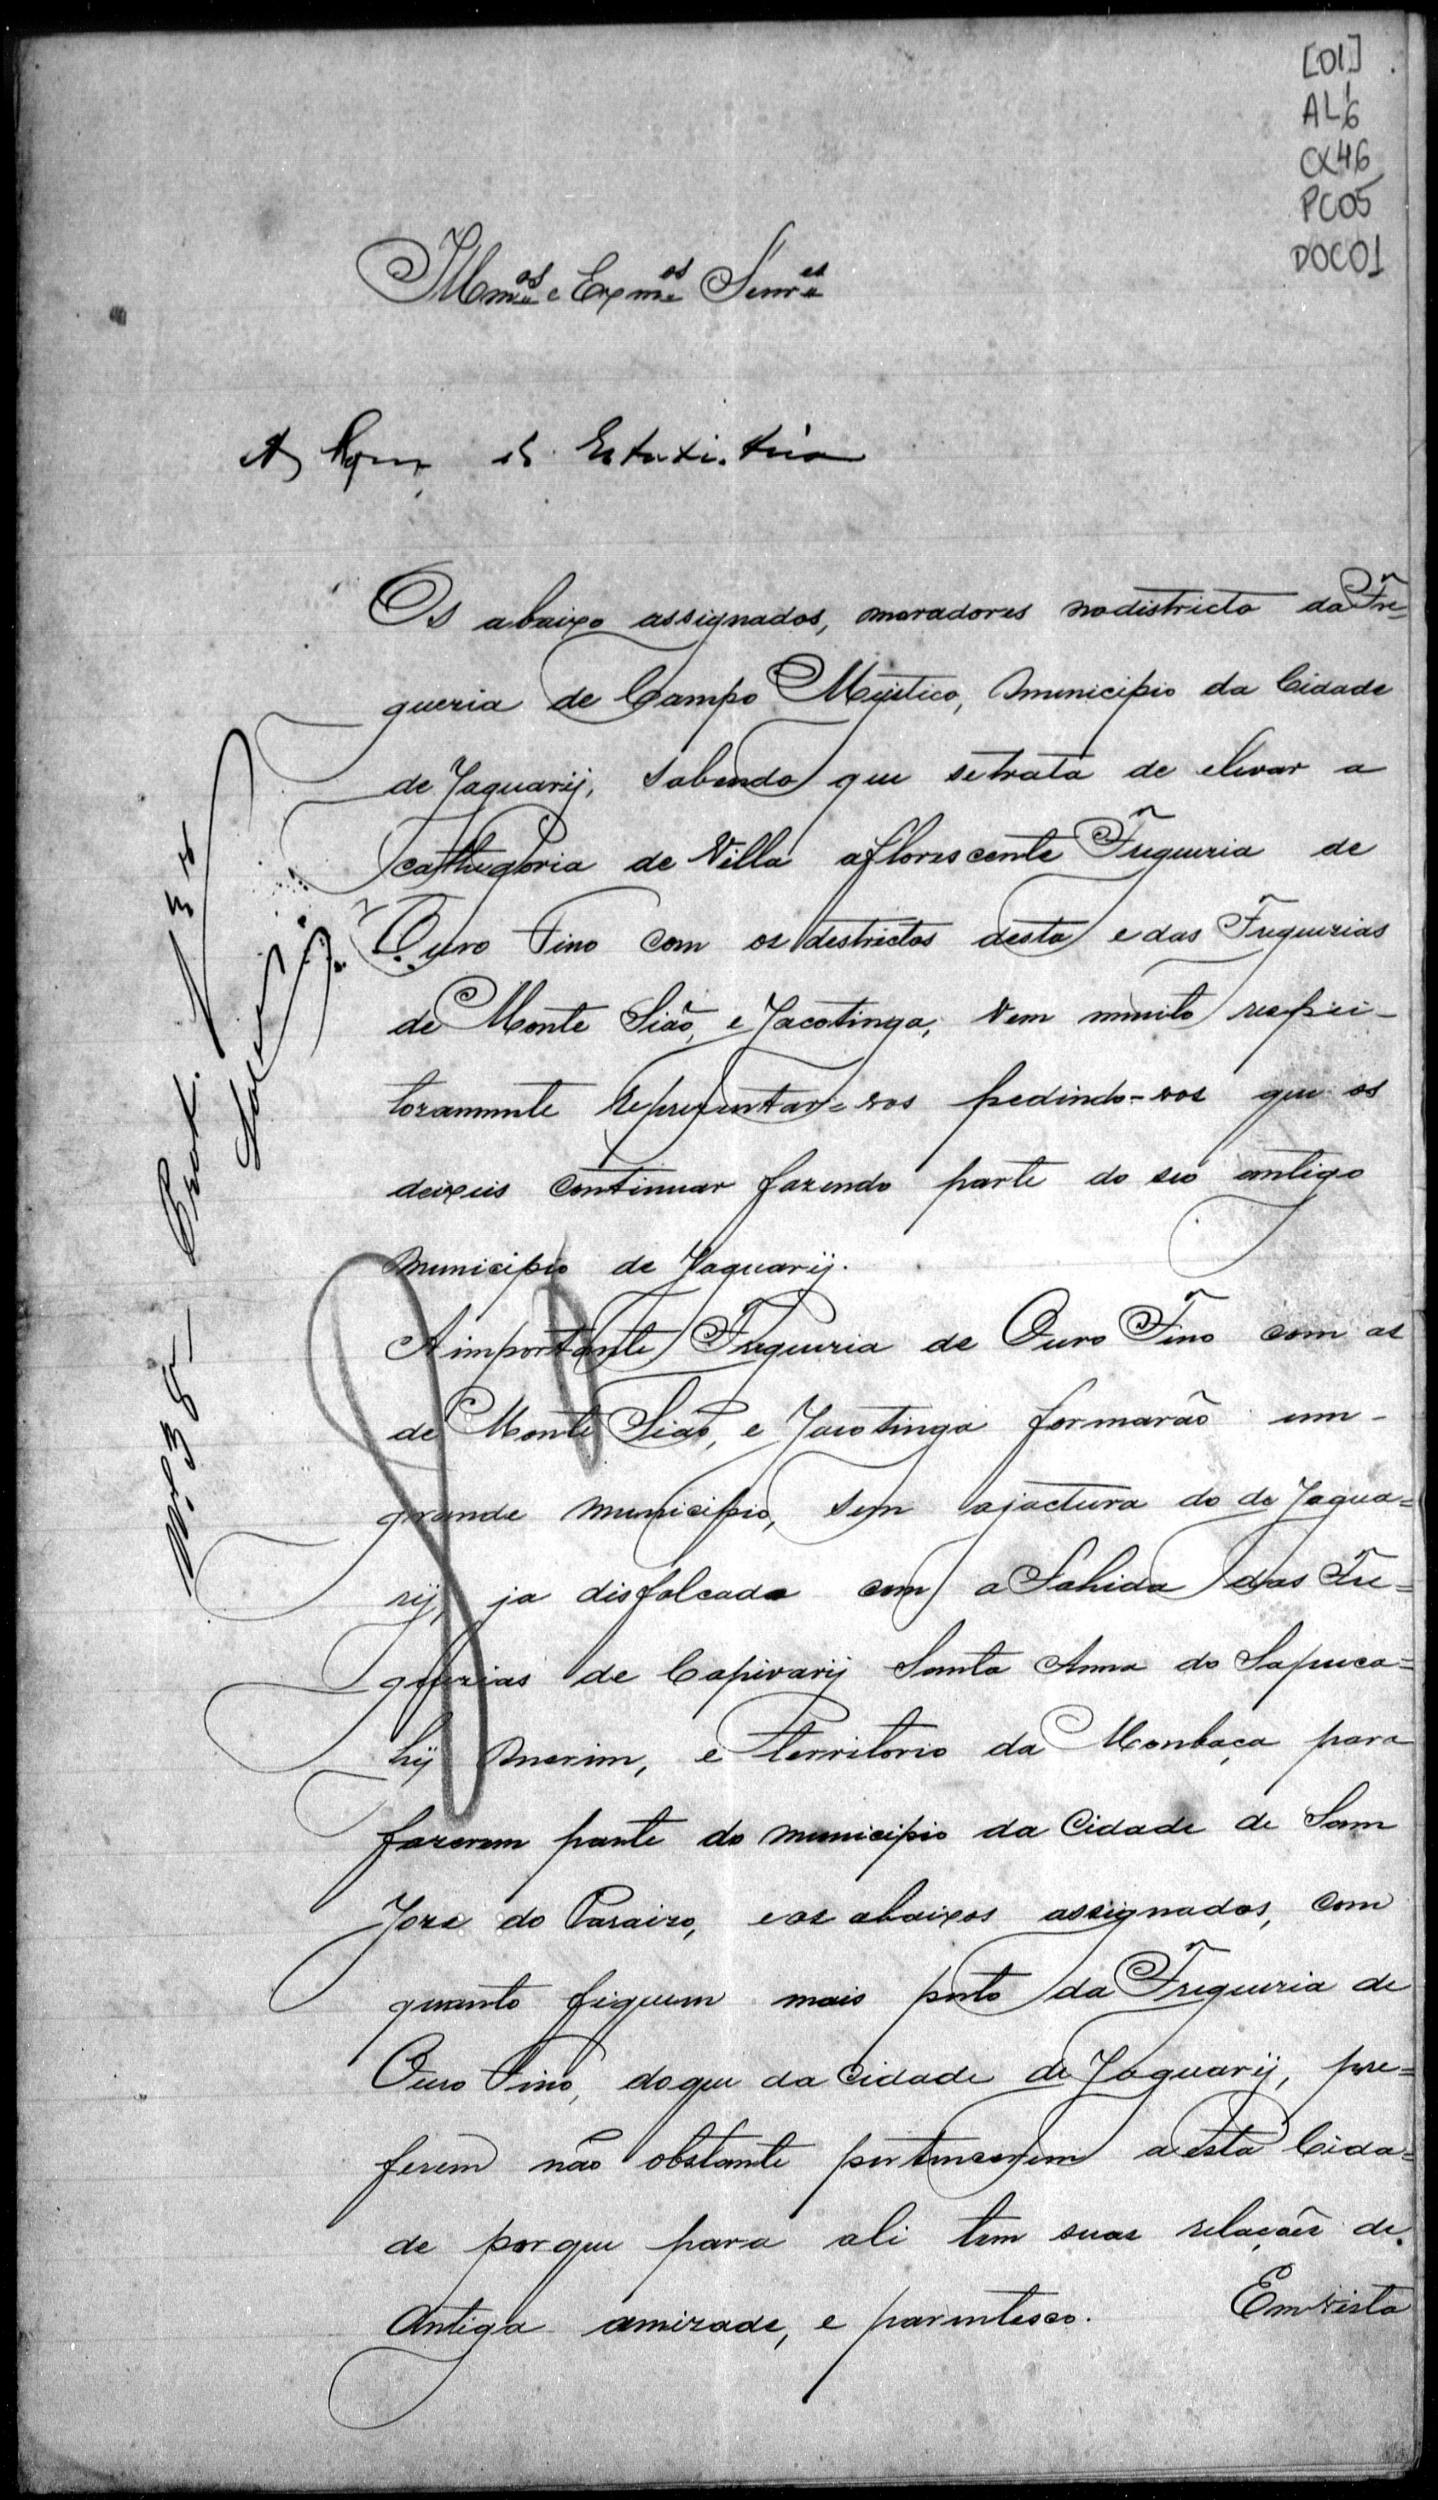 [01]
AL1,6
CX46
PC05
DOC01
Illmos e Exmos Senres
Os abaixo assignados, moradores nodistricto da Fre-
gueria de Campo Mystico, municipio da Cidade
de Jaguarÿ, sabendo que setrata de elevar a
cathegoria de Villa aflorescente Fregueria de
Ouro Fino com os destrictos desta e das Freguerias
de Monte Sião, e Jacotinga, vem muito respei-
tozamente representar=vos pedindo-vos que os
deixeis continuar fazendo parte do seo antigo
municipio de Jaguarÿ.
A importante Fregueria de Ouro Fino com as
de Monte Sião, e Jacotinga formarão um-
grande municipio, sem ajactura do de Jagua=
rÿ, ja disfalcado com a Sahida das Fre=
guerias de Capivarÿ Santa Anna do Sapuca=
hÿ merim, e territorio da Monbaça para
fazerem parte do municipio da Cidade de Sam
Joze do Paraizo, eos abaixos assignados, com
quanto fiquem mais perto da Fregueria de
Ouro Fino, doque da Cidade de Jaguarÿ, pre=
ferem não obstante pertencerem a esta Cida=
de porque para ali tem suas relações de
antiga amizade, e parentesco. Emvista
Nº 38-